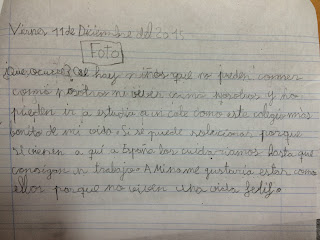 Viernes 11 de Diciembre del 2015
Foto
¿Que ocurre? Que hay niños que no pueden comer
como nosotros ni vivir como nosotros Y no
pueden ir a estudia a un cole como este colegio mas
bonito de mi vida. Si se puede solucionar porque
si vienen a quí a España los cuida-ramos hasta que
consigan un trabajo. A Mi no me gustaria estar como
ellos porque no viven una vida feliz.